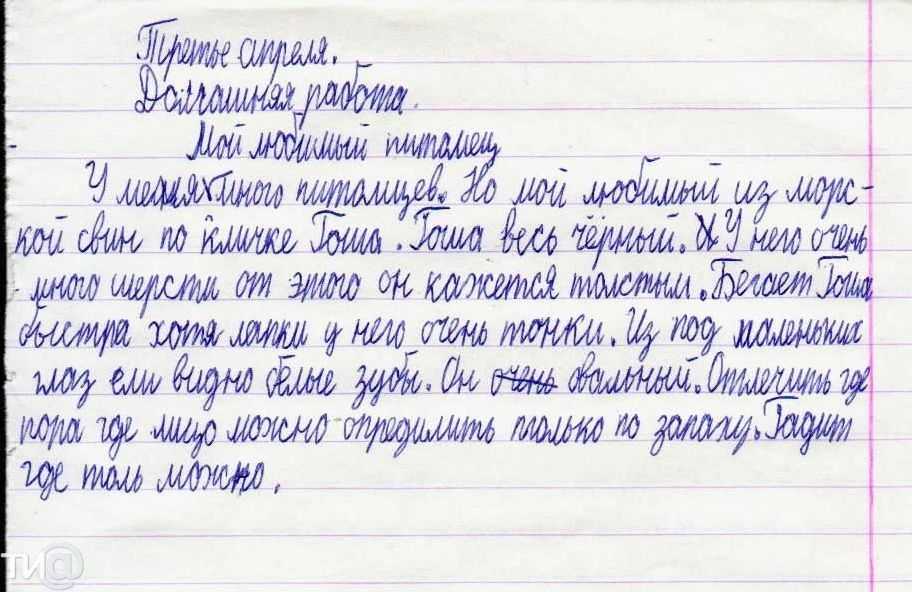 Третье апреля.
Домашняя работа.
Мой любимый питомец
У меня много питомцев. Но мой любимый из морс-
кой свин по кличке Гоша. Гоша весь чёрный. У него очень
много шерсти от этого он кажется толстым. Бегает Гоша
быстра хотя лапки у него очень тонки. Из под маленьких
глаз ели видно белые зубы. Он очень овальный. Отлечить где
попа где лицо можно опредилить только по запаху. Гадит
где толь можно.
ТИ@